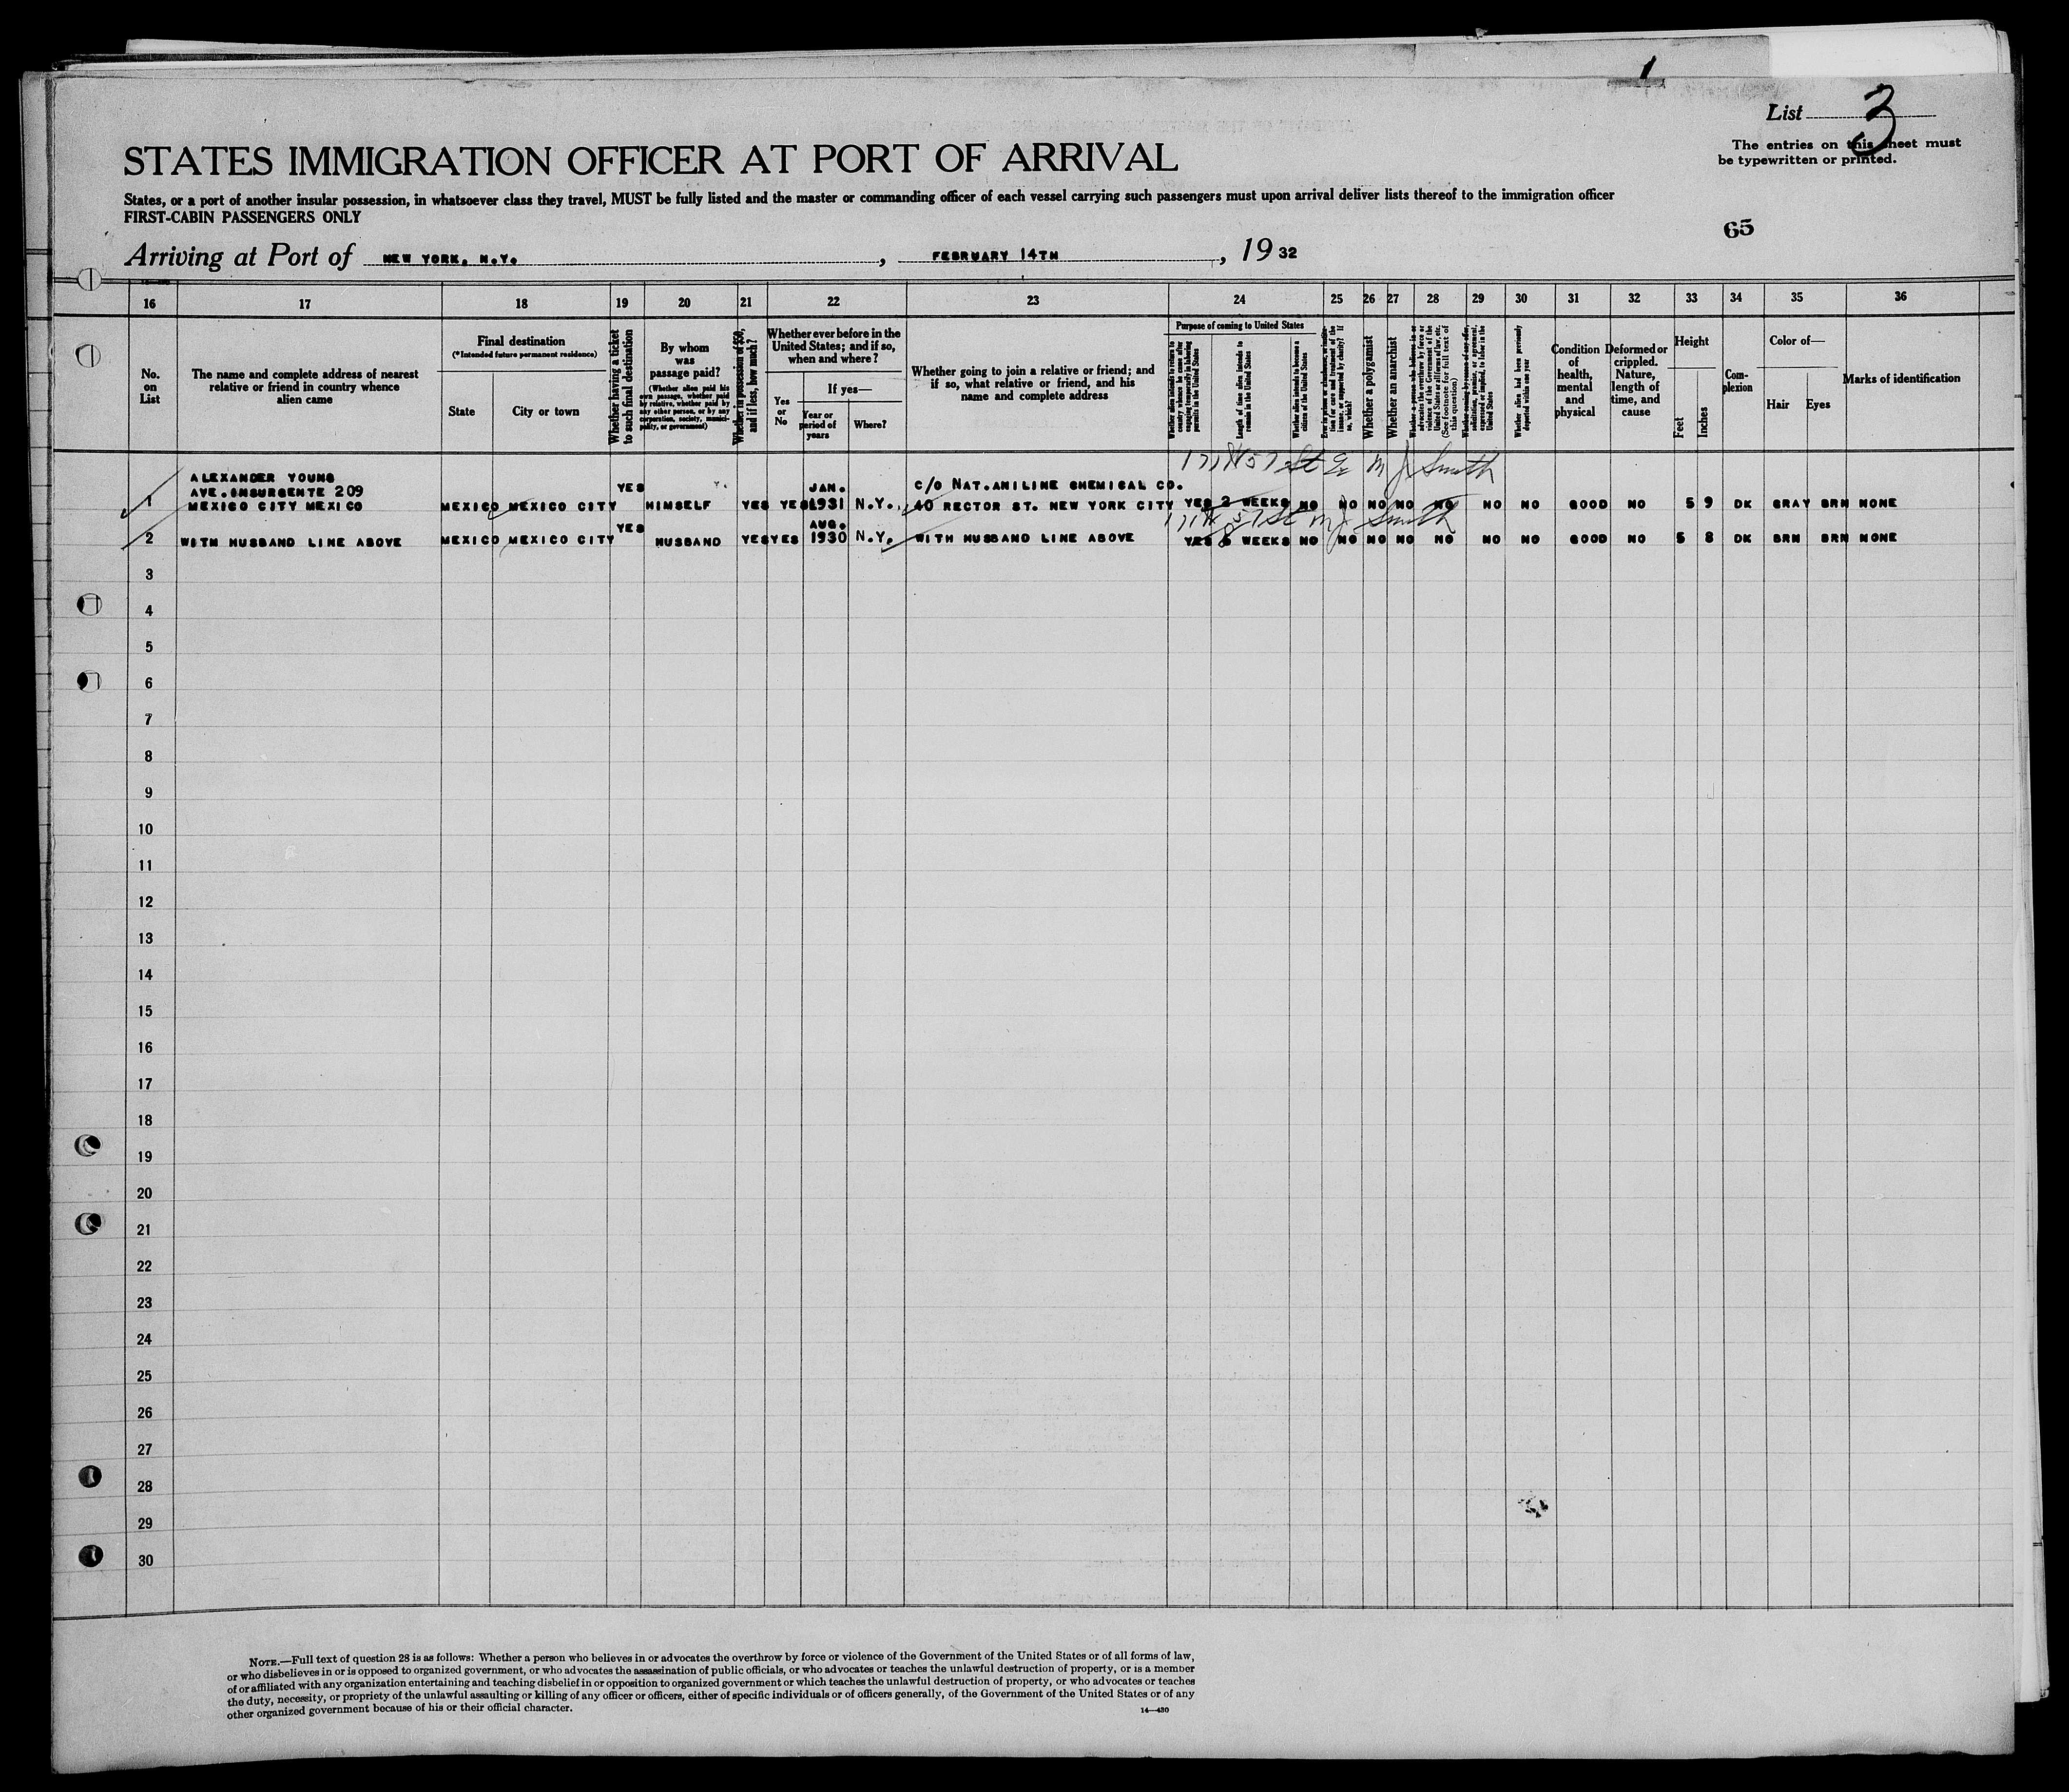 1
List 3
The entries on this sheet must
be typewritten or printed.
STATES IMMIGRATION OFFICER AT PORT OF ARRIVAL
States, or a port of another insular possession, in whatsoever class they travel, MUST be fully listed and the master or commanding officer of each vessel carrying such passengers must upon arrival deliver lists thereof to the immigration officer
FIRST-CABIN PASSENGERS ONLY
65
Arriving at Port of NEW YORK, N.Y. , FEBRUARY 14TH , 1932
16 17 18 19 20 21 22 23 24 25 26 27 28 29 30 31 32 33 34 35 36
No. on List
The name and complete address of nearest relative or friend in country whence alien came
Final destination
(*Intended future permanent residence)
State
City or town
Whether having a ticket to such final destination
By whom was passage paid?
(Whether alien paid his own passage, whether paid by relative, whether paid by any other person, or by any corporation, society, municipality, or government)
Whether in possession of $50, and if less, how much?
Whether ever before in the United States; and if so, when and where?
Yes or No
If yes—
Year or period of years
Where?
Whether going to join a relative or friend; and if so, what relative or friend, and his name and complete address
Purpose of coming to United States
Whether alien intends to return to country whence he came after engaging temporarily in laboring pursuits in the United States
Length of time alien intends to remain in the United States
Whether alien intends to become a citizen of the United States
Whether a polygamist
Whether an anarchist
Whether alien had been previously deported within one year
Condition of health, mental and physical
Deformed or crippled. Nature, length of time, and cause
Height
Feet
Inches
Complexion
Color of—
Hair
Eyes
Marks of identification
171 W 57 St M J Smith
ALEXANDER YOUNG
AVE. INSURGENTE 209 YES JAN. C/O NAT. ANILINE CHEMICAL CO.
1 MEXICO CITY MEXICO MEXICO MEXICO CITY HIMSELF YES YES 1931 N.Y. 40 RECTOR ST. NEW YORK CITY YES 2 WEEKS NO NO NO NO NO NO NO GOOD NO 5 9 DK GRAY BRN NONE
YES AUG. 171 W 57 St M J Smith
2 WITH HUSBAND LINE ABOVE MEXICO MEXICO CITY HUSBAND YES YES 1930 N.Y. WITH HUSBAND LINE ABOVE YES WEEKS NO NO NO NO NO NO NO GOOD NO 5 8 DK BRN BRN NONE
3
4
5
6
7
8
9
10
11
12
13
14
15
16
17
18
19
20
21
22
23
24
25
26
27
28
29
30
NOTE.—Full text of question 28 is as follows: Whether a person who believes in or advocates the overthrow by force or violence of the Government of the United States or of all forms of law,
or who disbelieves in or is opposed to organized government, or who advocates the assassination of public officials, or who advocates or teaches the unlawful destruction of property, or is a member
of or affiliated with any organization entertaining and teaching disbelief in or opposition to organized government or which teaches the unlawful destruction of property, or who advocates or teaches
the duty, necessity, or propriety of the unlawful assaulting or killing of any officer or officers, either of specific individuals or of officers generally, of the Government of the United States or of any
other organized government because of his or their official character.
14—430